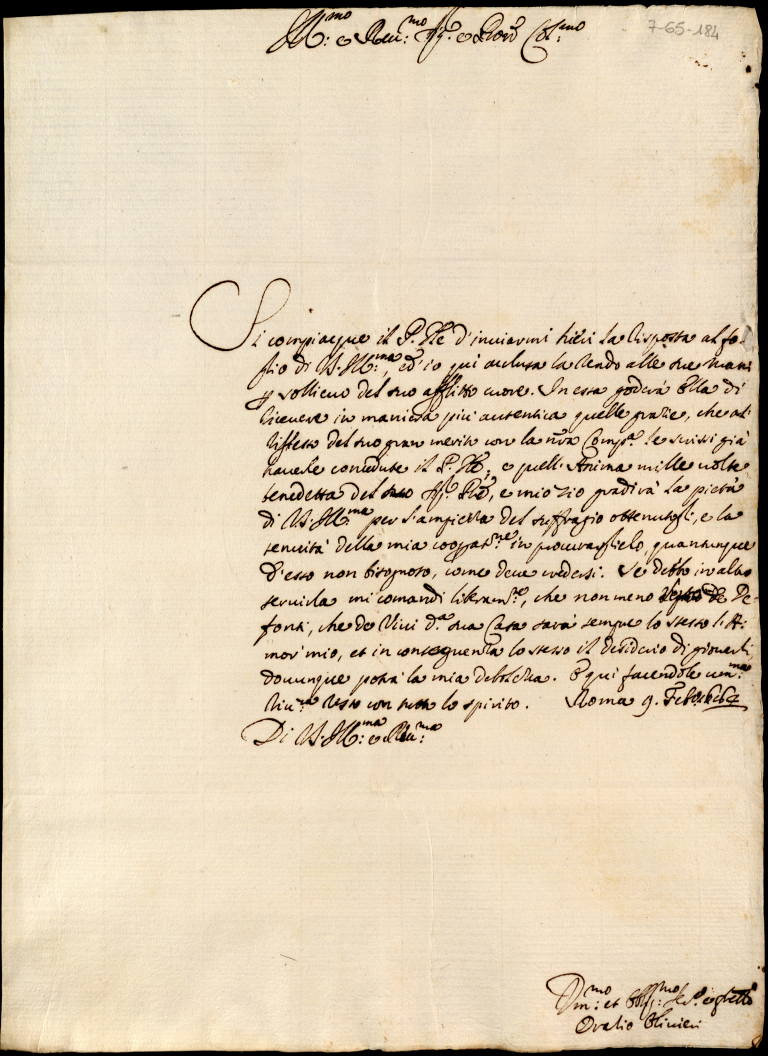 Ill.mo e Reu.mo Sig.e e Pron Col.mo
7-65-184
Si compiacque il P. Nře d'inuiarmi hieri la risposta al fo-
glio di V.S. Ill.ma, ed io qui acclusa la rendo alle sue mani
p sollieuo del suo afflitto cuore. In essa goderà Ella di
riceuere in maniera più autentica quelle grazie, che al
riflesso del suo gran merito con la nr̃a Comp.a le scrissi già
hauerle concedute il P. Nřo, e quell'Anima mille uolte
benedetta del Sig. Zio, e mio Zio gradirà la pietà
di V.S. Ill.ma per l'ampiezza del suffragio ottenutogli, e la
tenuità della mia cooperat.ne in procurarglielo, quantunque
d'esso non bisognoso, come deue credersi. Se debbo in altro
seruirla mi comandi liberam.te, che non meno de De-
fonti, che de Viui d.a sua Casa sarà sempre lo stesso l'A-
mor mio, et in conseguenza lo stesso il desiderio di giouarli
douunque potrà la mia debolezza. E qui facendole um.ma
riu.za resto con tutto lo spirito. Roma 9. Febr.o
Di V.S. Ill.ma e Reu.ma
Diu.mo et Obl.mo Ser.e
Oratio Oliuieri